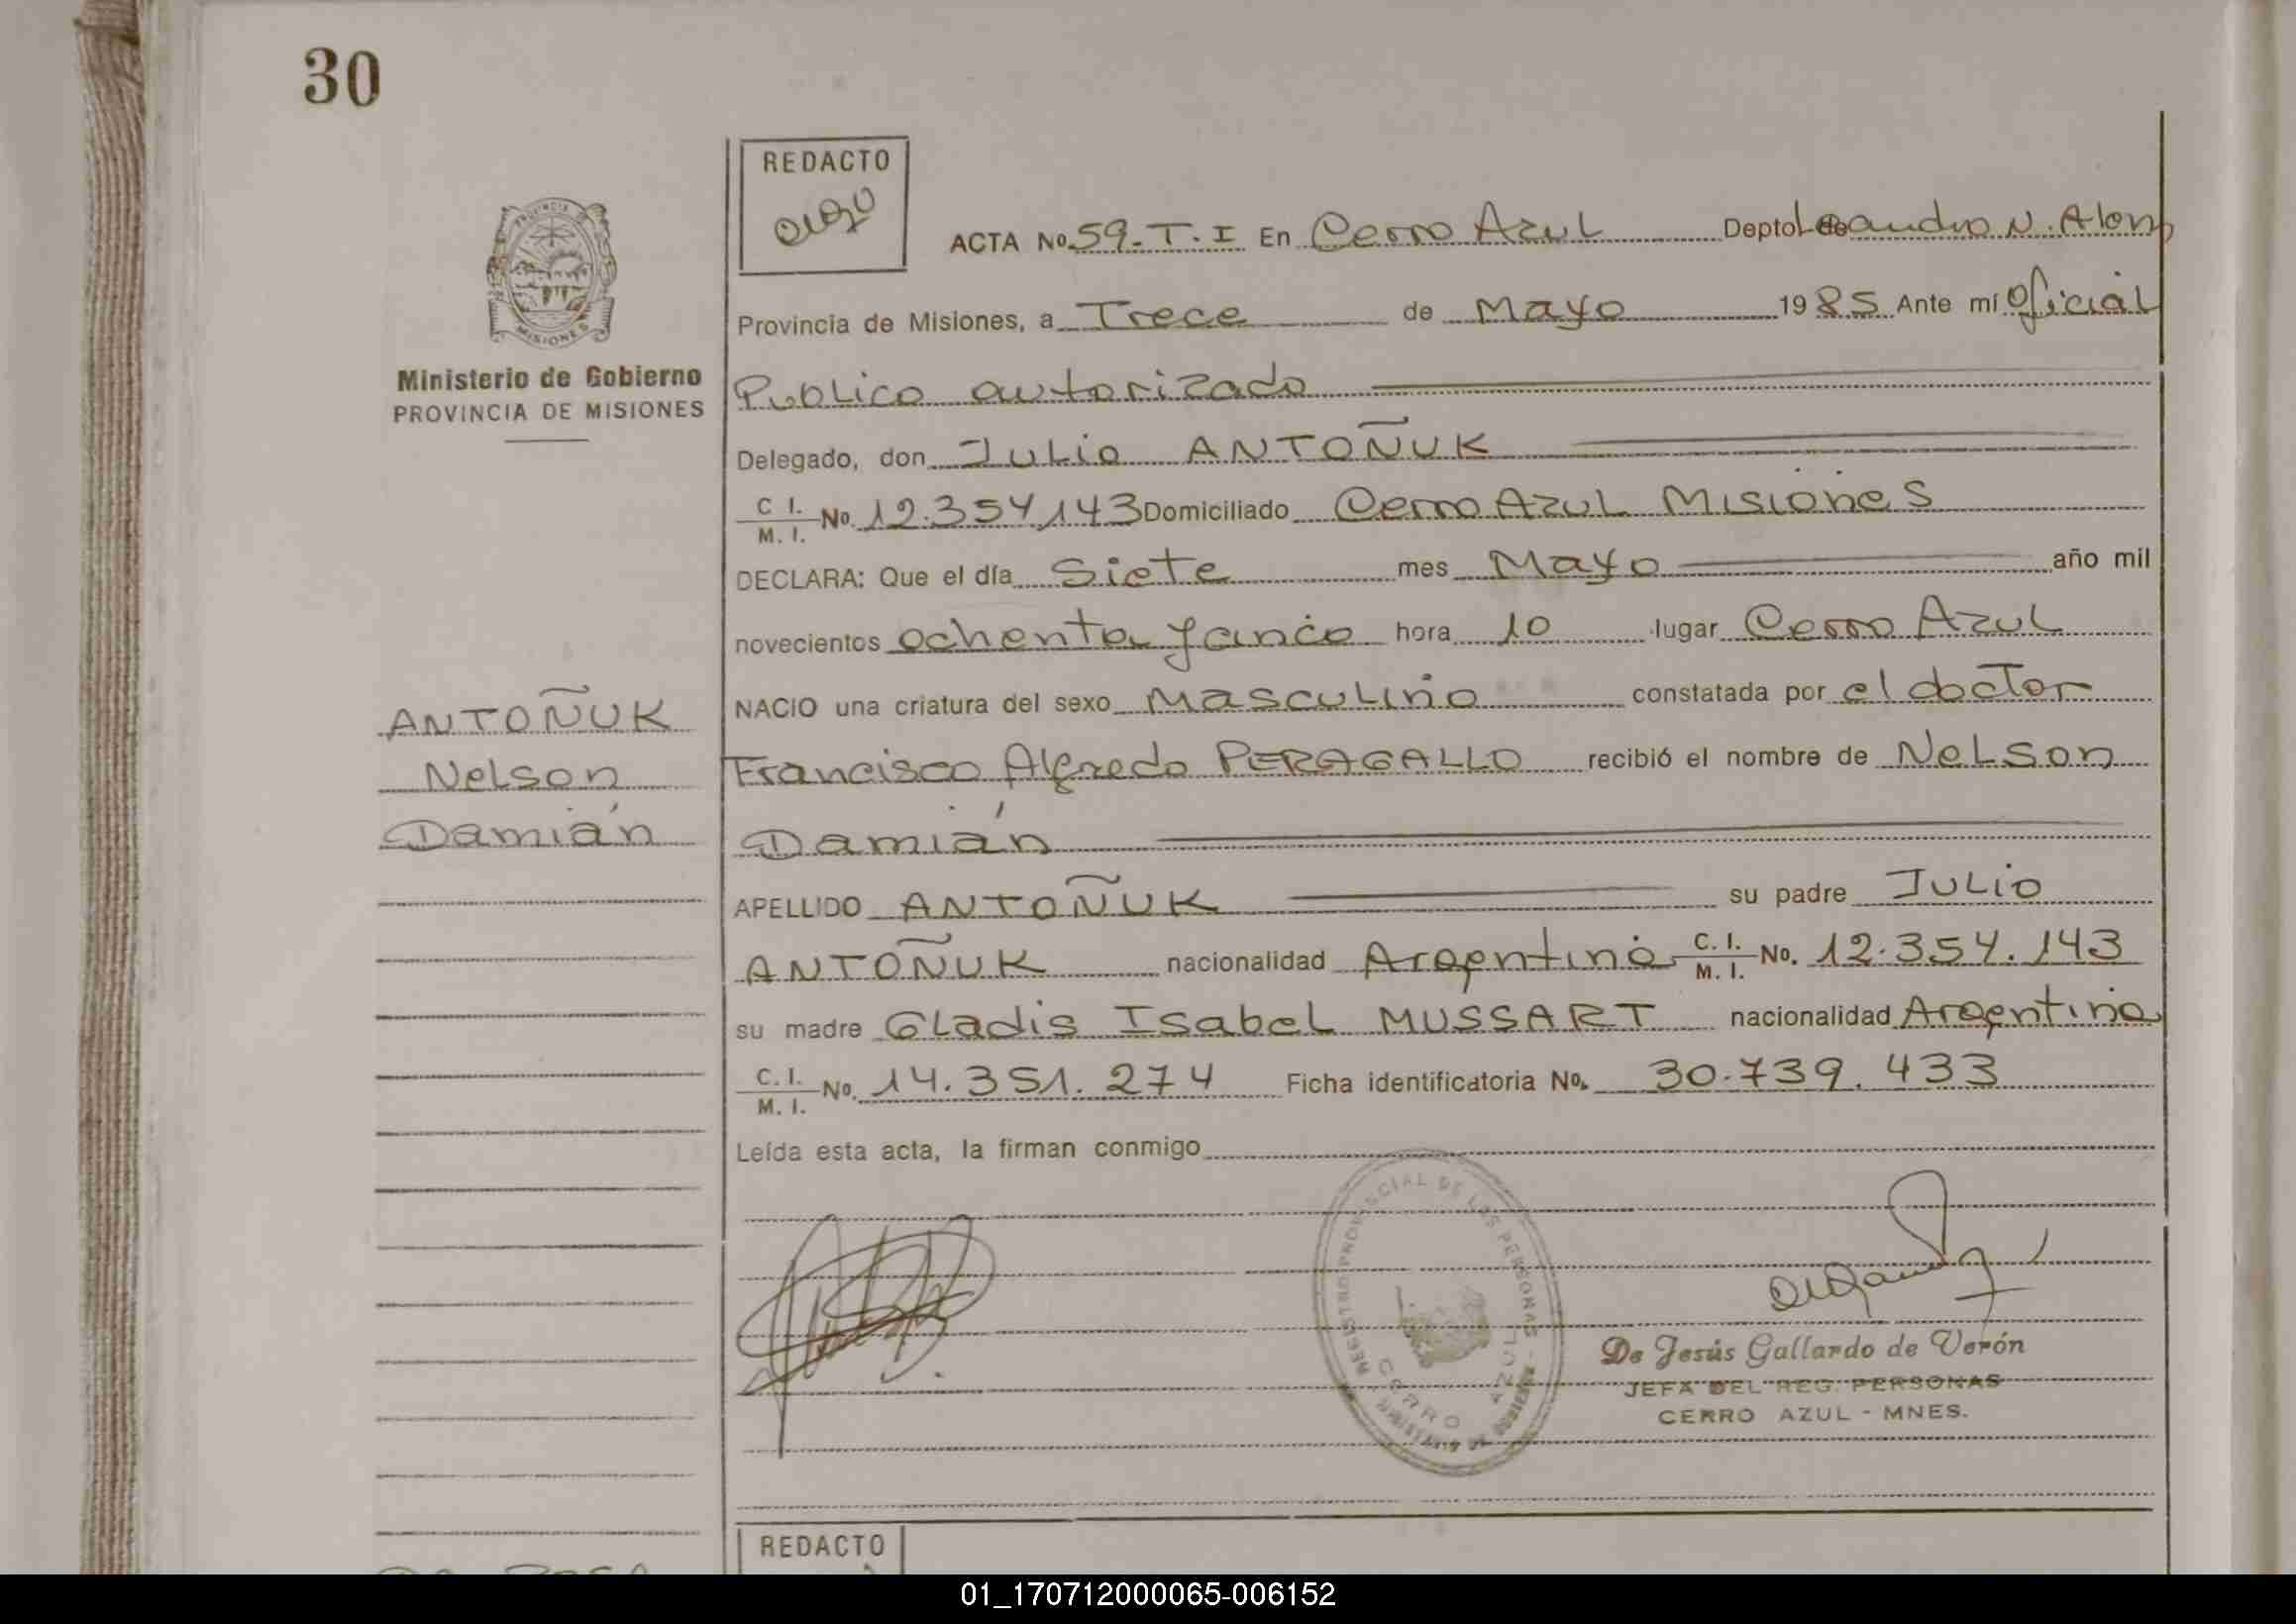 30
REDACTO
ACTA No. 59-T.I En Cerro Azul Depto. de Leandro N. Alem
Provincia de Misiones, a Trece de Mayo 1985 Ante mí Oficial
Ministerio de Gobierno
PROVINCIA DE MISIONES
Publico autorizado
Delegado, don Julio ANTOÑUK
C. I. / M. I. No. 12.354.143 Domiciliado Cerro Azul Misiones
DECLARA: Que el día Siete mes Mayo año mil
novecientos ochenta y cinco hora 10 lugar Cerro Azul
ANTOÑUK
Nelson
Damián
NACIO una criatura del sexo Masculino constatada por el doctor
Francisco Alfredo PERAGALLO recibió el nombre de Nelson
Damián
APELLIDO ANTOÑUK su padre Julio
ANTOÑUK nacionalidad Argentina C. I. / M. I. No. 12.354.143
su madre Gladis Isabel MUSSART nacionalidad Argentina
C. I. / M. I. No. 14.351.274 Ficha identificatoria No. 30.739.433
Leída esta acta, la firman conmigo
REGISTRO PROVINCIAL DE LAS PERSONAS
CERRO AZUL
MINISTERIO DE GOBIERNO
De Jesús Gallardo de Verón
JEFA DEL REG. PERSONAS
CERRO AZUL - MNES.
REDACTO
01_170712000065-006152